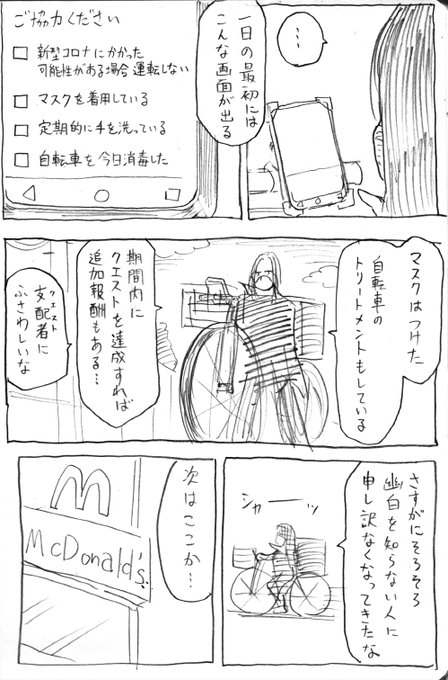 …
一日の最初には
こんな画面が出る
ご協力ください
新型コロナにかかった
可能性がある場合運転しない
マスクを着用している
定期的に手を洗っている
自転車を今日消毒した
マスクはつけた
自転車の
トリートメントもしている
期間内に
クエストを達成すれば
追加報酬もある…
支配者に
クエスト
ふさわしいな
さすがにそろそろ
幽白を知らない人に
申し訳なくなってきたな
シャーッ
次はここか…
M
McDonald's